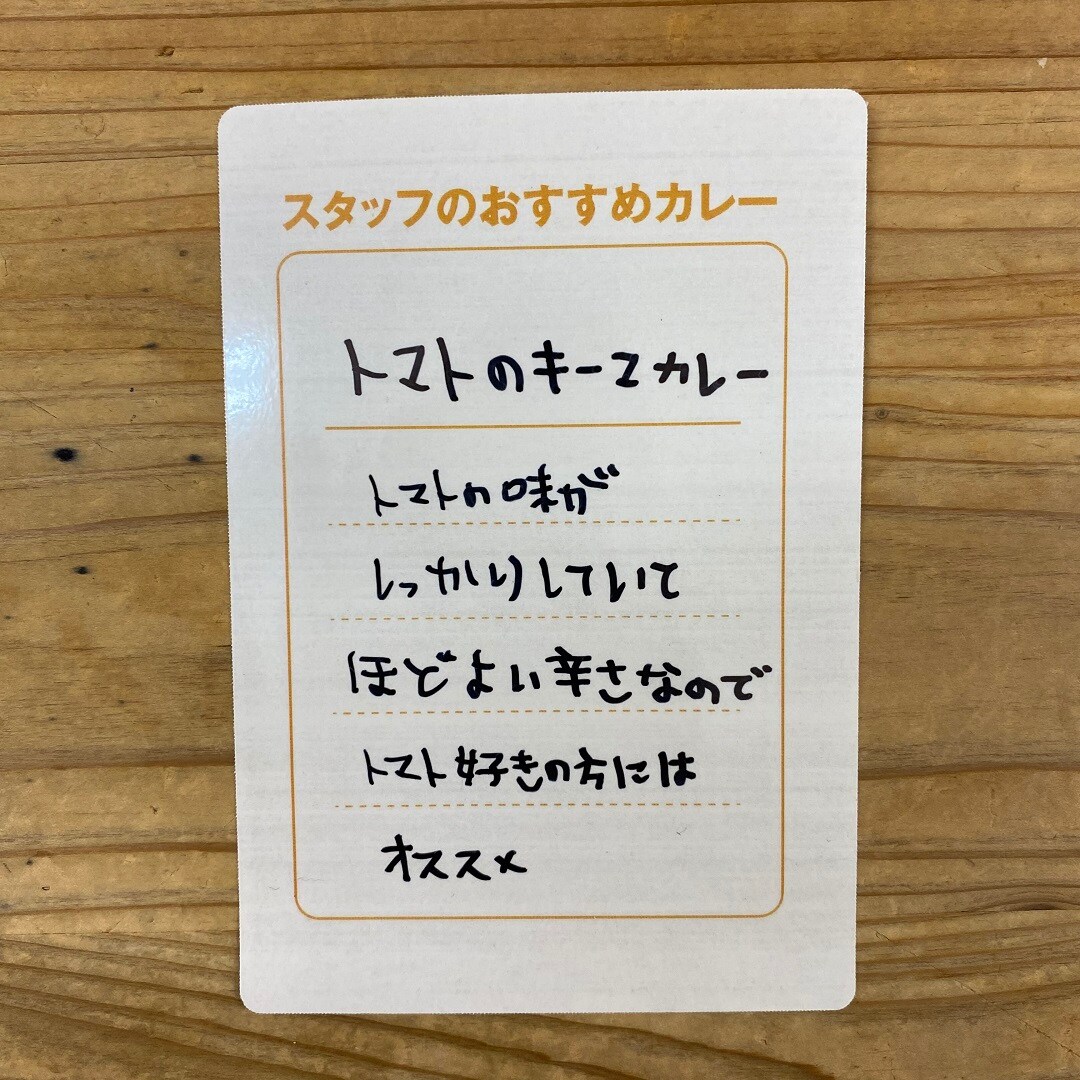 スタッフのおすすめカレー
トマトのキーマカレー
トマトの味が
しっかりしていて
ほどよい辛さなので
トマト好きの方には
オススメ